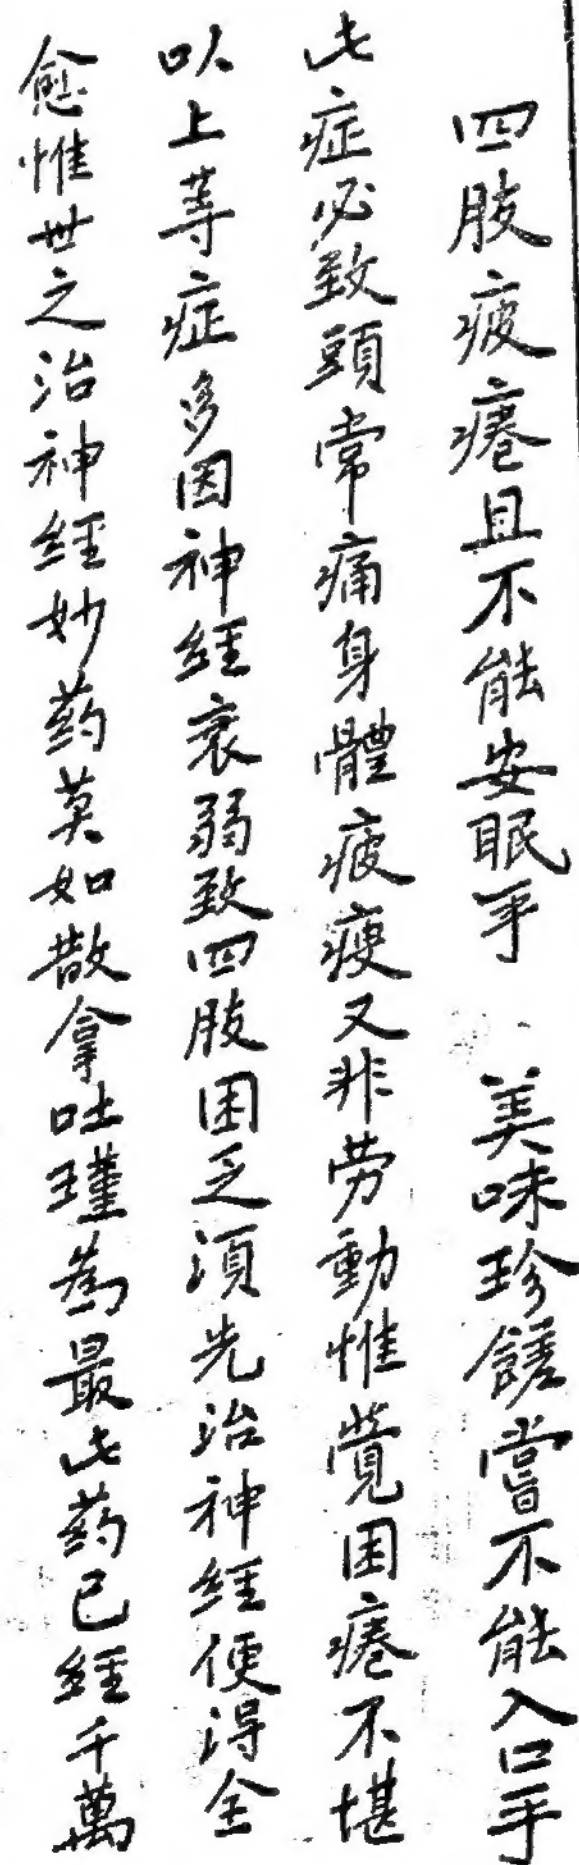 四肢疲瘙且不能安眠乎 美味珍饈嘗不能入口乎
此症必致頭常痛身體疲瘦又非劳動惟覺困瘙不堪
以上等症多因神經衰弱致四肢困乏須先治神經便得全
愈惟世之治神經妙药莫如散拿吐瑾為最此药已經千萬